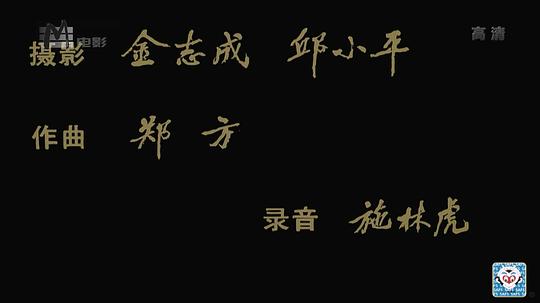 电影
高清
摄影 金志成 邱小平
作曲 郑方
录音 施林虎
SAFS SAFS SAFS